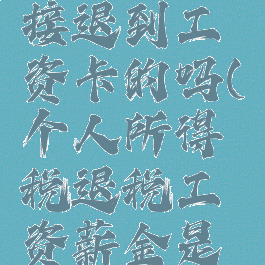 接退到工
资卡的吗(
个人所得
税退税工
资薪金是